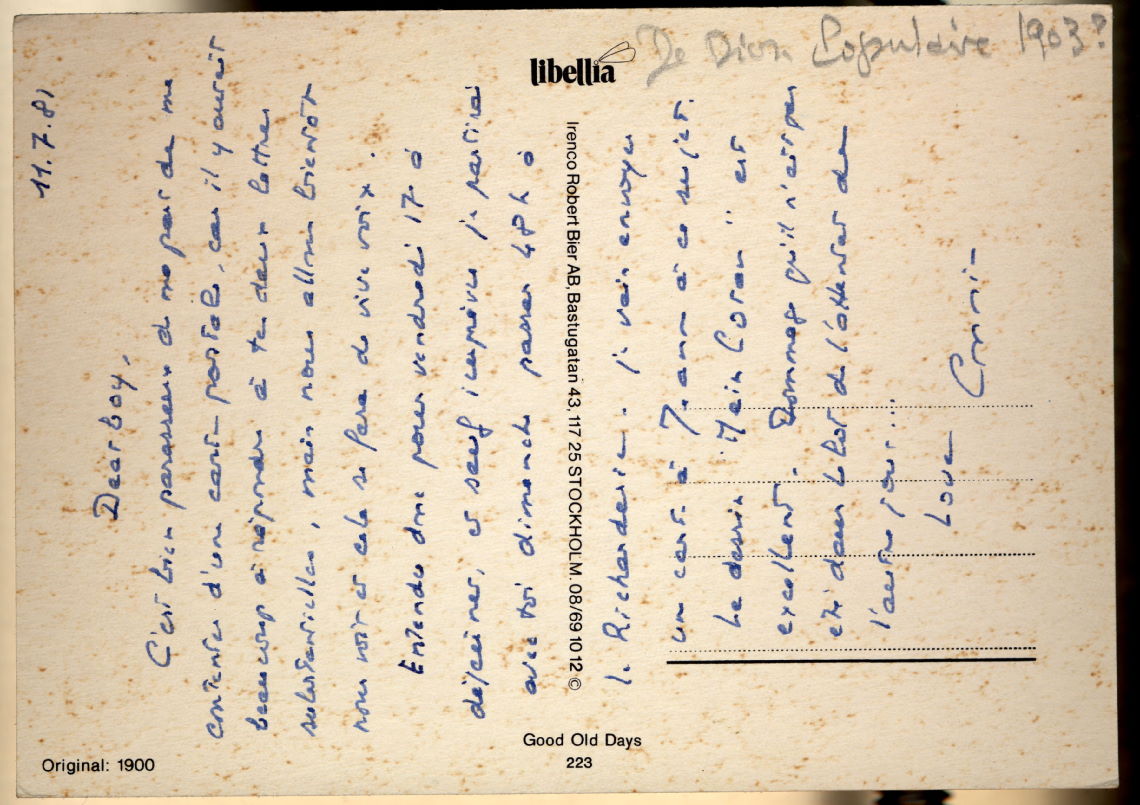 De Dion Populaire 1903?
libellia
11.7.81
Dear boy,
C'est bien paresseux de ma part de me
contenter d'une carte postale, car il y aurait
beaucoup à répondre à tes deux lettres
substantielles, mais nous allons bientôt
nous voir et cela se fera de vive voix.
Entendu donc pour vendredi 17 à
déjeuner, et sauf imprévu je partirai
avec toi dimanche passer 48 h à
la Richarderie. je vais envoyer
un carte à Jeanne à ce sujet.
Le dessin "Mein Coran" est
excellent. Dommage qu'il n'ait pas
été dans le lot de l'attentat de
l'autre jour...
Love
Irenco Robert Bier AB, Bastugatan 43, 117 25 STOCKHOLM. 08/69 10 12 ©
Good Old Days
223
Original: 1900